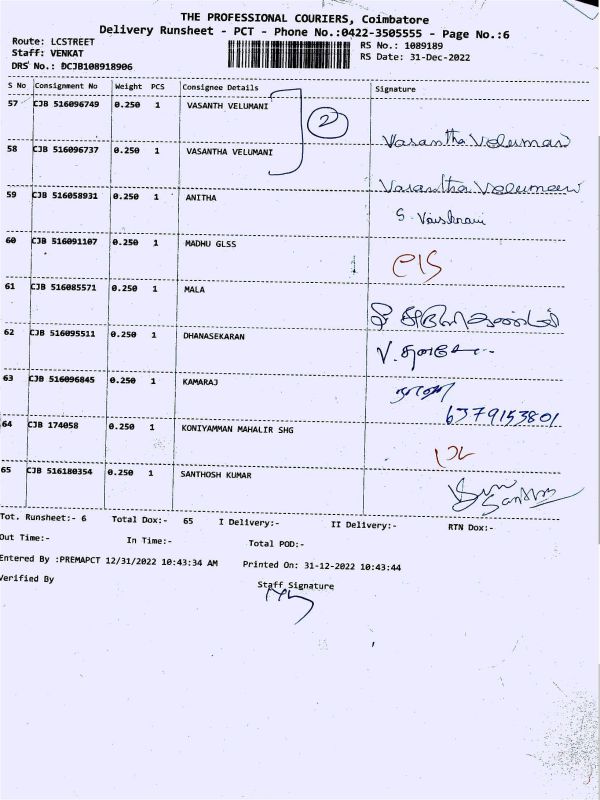 THE PROFESSIONAL COURIERS, Coimbatore
Delivery Runsheet - PCT - Phone No.:0422-3505555 - Page No.:6
Route: LCSTREET
Staff: VENKAT
DRS No.: DCJB108918906
RS No.: 1089189
RS Date: 31-Dec-2022
S No Consignment No Weight PCS Consignee Details Signature
57 CJB 516096749 0.250 1 VASANTH VELUMANI
2
Vasantha Velumani
58 CJB 516096737 0.250 1 VASANTHA VELUMANI
Vasantha Velumani
59 CJB 516058931 0.250 1 ANITHA
60 CJB 516091107 0.250 1 MADHU GLSS
61 CJB 516085571 0.250 1 MALA
62 CJB 516095511 0.250 1 DHANASEKARAN
63 CJB 516096845 0.250 1 KAMARAJ
6379153801
64 CJB 174058 0.250 1 KONIYAMMAN MAHALIR SHG
65 CJB 516180354 0.250 1 SANTHOSH KUMAR
Tot. Runsheet:- 6 Total Dox:- 65 I Delivery:- II Delivery:- RTN Dox:-
Out Time:- In Time:- Total POD:-
Entered By :PREMAPCT 12/31/2022 10:43:34 AM Printed On: 31-12-2022 10:43:44
Verified By
Staff Signature